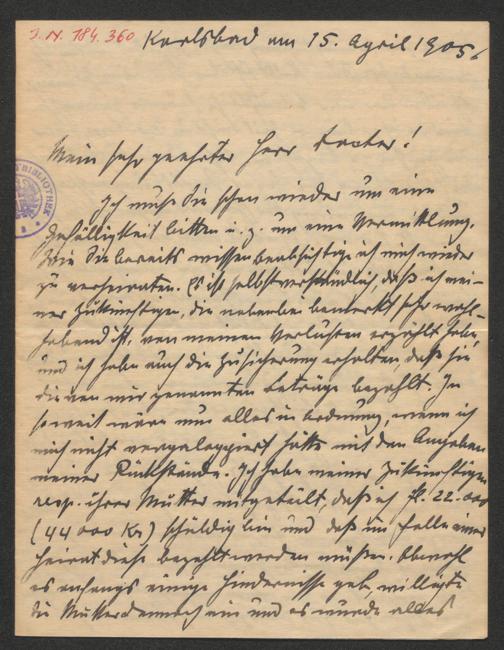 J. N. 184.360
Karlsbad am 15. April 1905.
BIBLIOTHEK
Mein sehr geehrter Herr Doctor!
Ich muss Sie schon wieder um eine
Gefälligkeit bitten u. z. um eine Vermittlung.
Wie Sie bereits wissen beabsichtige ich mich wieder
zu verheiraten. Es ist selbstverständlich, daß ich mei-
ner Zukünftigen, die nebenbei bemerkt sehr wohl-
habend ist, von meinen Verlusten erzählt habe,
und ich habe auch die Zusicherung erhalten, daß sie
die von mir genannten Beträge bezahlt. In
soweit wäre nun alles in Ordnung, wenn ich
mich nicht vergaloppiert hätte mit den Angaben
meiner Rückstände. Ich habe meiner Zukünftigen
resp. ihrer Mutter mitgeteilt, daß ich fl. 22.000
(44000 Kr) schuldig bin und daß im Falle einer
Heirat diese bezahlt werden müssen. Obwohl
es anfangs einige Hindernisse gab, willigte
die Mutter dennoch ein und es wurde alles